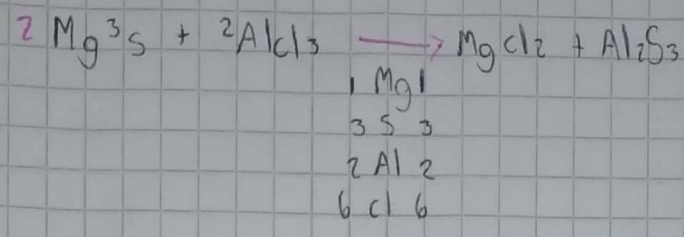 2 Mg³S + ²AlCl₃ → MgCl₂ + Al₂S₃
1 Mg 1
3 S 3
2 Al 2
6 Cl 6